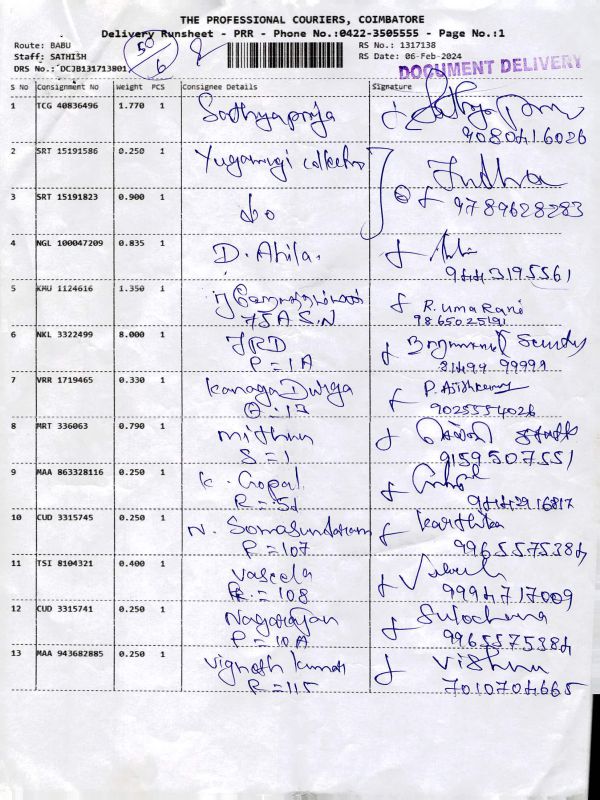 THE PROFESSIONAL COURIERS, COIMBATORE
Delivery Runsheet - PRR - Phone No.:0422-3505555 - Page No.:1
Route: BABU
Staff: SATHISH
DRS No.: DCJB131713801
50
6
RS No.: 1317138
RS Date: 06-Feb-2024
DOCUMENT DELIVERY
S No Consignment No Weight PCS Consignee Details Signature
1 TCG 40836496 1.770 1 Sathyapriya
9080416026
2 SRT 15191586 0.250 1
Indhra
3 SRT 15191823 0.900 1 do
9789628283
4 NGL 100047209 0.835 1 D. Ahila.
9443195561
5 KMU 1124616 1.350 1 R. Uma Rani
75A S.N 9865025191
6 NKL 3322499 8.000 1 JRD Security
P = 1A 81499 99991
7 VRR 1719465 0.330 1 Kanaga Durga
9025554026
8 MRT 336063 0.790 1 mithun
S = 1 9159507551
9 MAA 863328116 0.250 1 K. Gopal
R = 51
10 CUD 3315745 0.250 1 N. Somasundaram Karthika
P = 107 9965575384
11 TSI 8104321 0.400 1
R = 108 9994717009
12 CUD 3315741 0.250 1 Nagarajan Sulochana
P = 10A 9965575384
13 MAA 943682885 0.250 1 Vignesh Kumar Vishnu
R = 115 7010704665